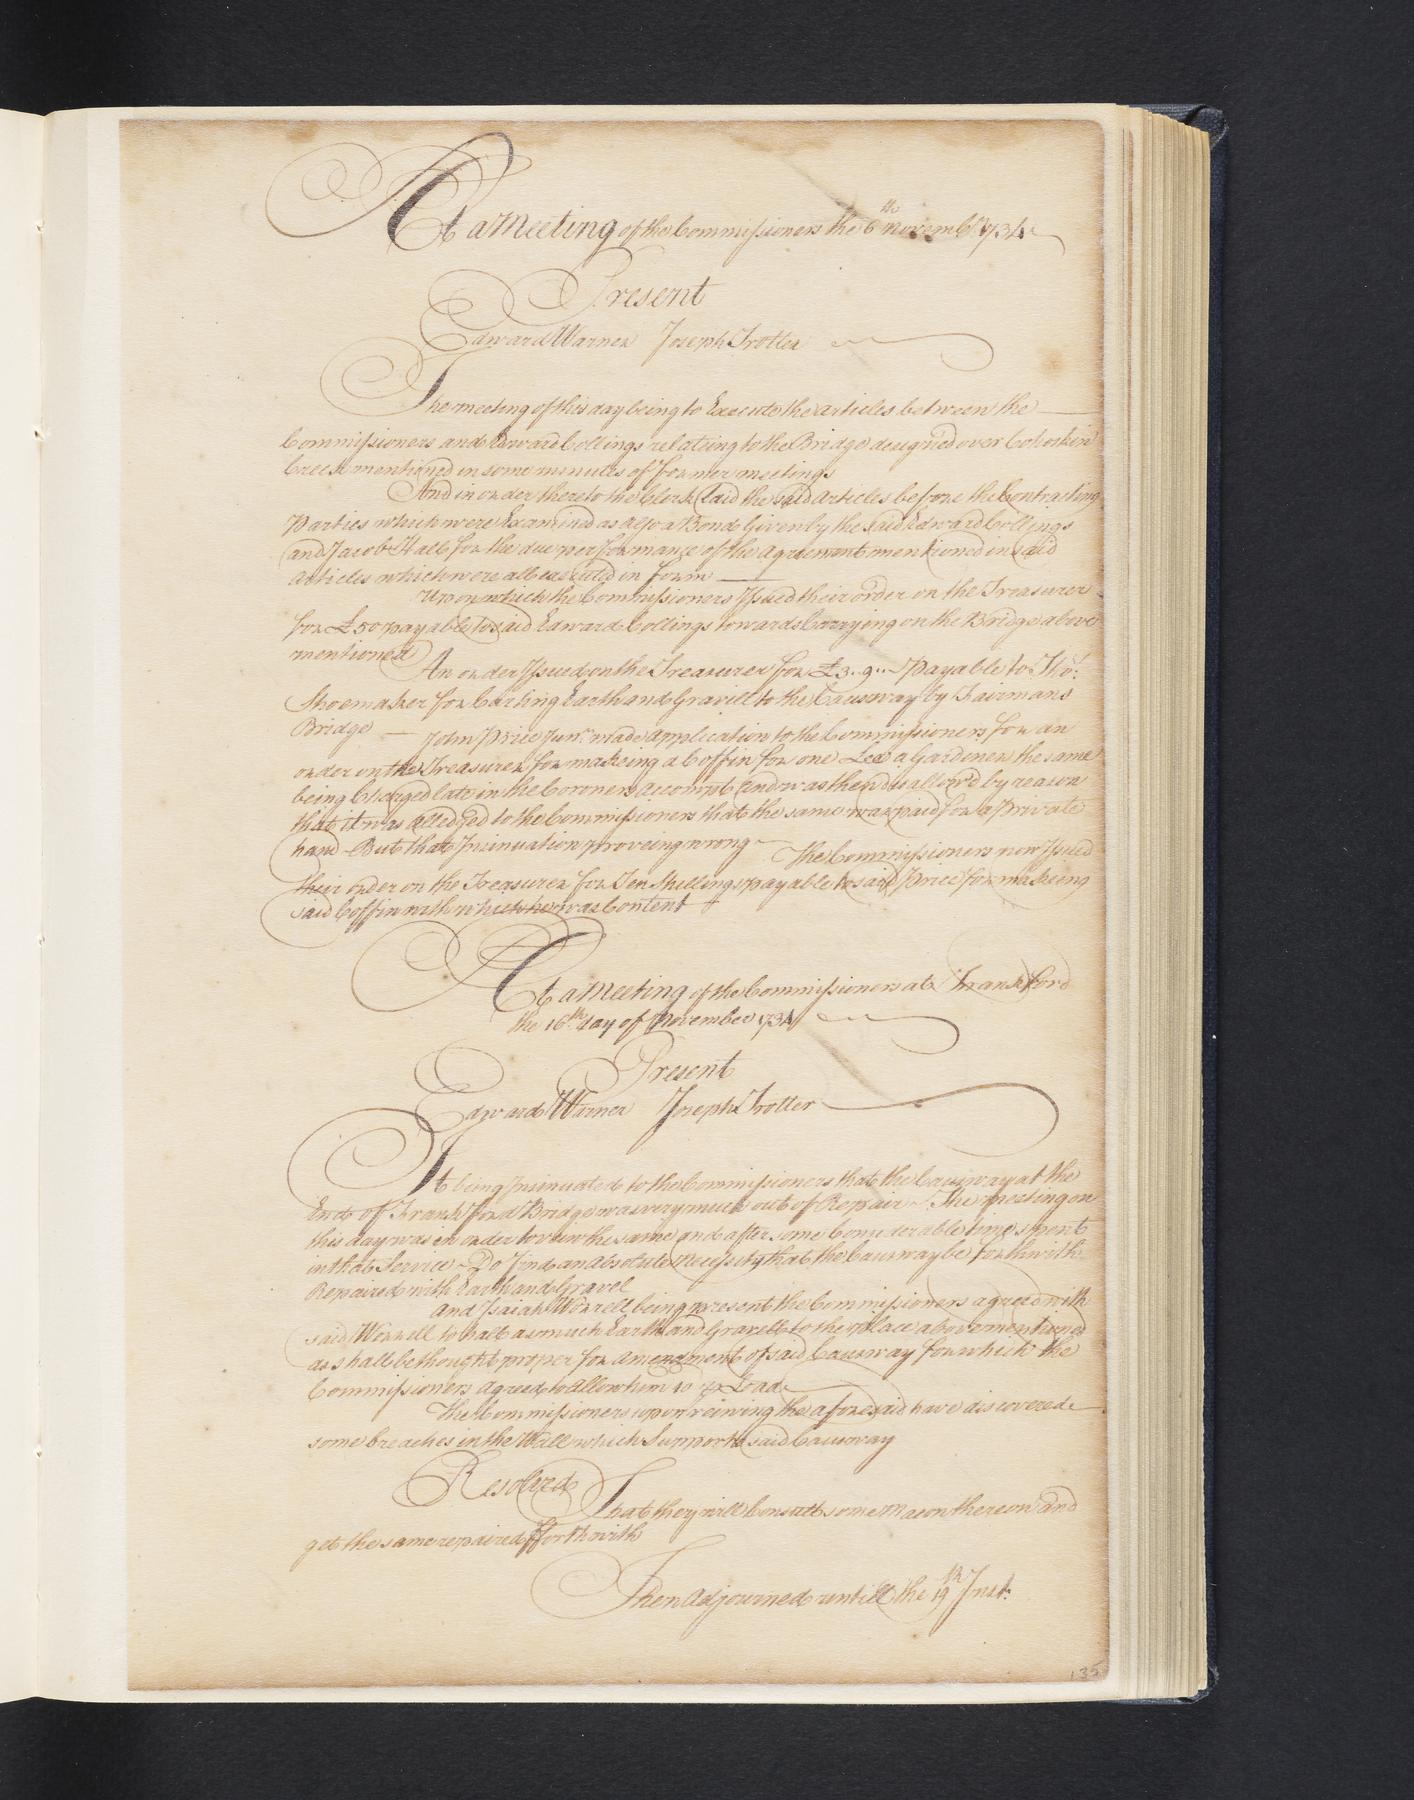 At a Meeting of the Commissioners the 6th Novemb 1734
Present
Edward Warner Joseph Trotter
The meeting of this day being to Execute the articles between the
Commissioners and Edward Collings relateing to the Bridge designed over Cohockin
Creek mentioned in some minutes of former meetings
And in order thereto the Clerk Laid the said articles before the Contracting
Parties which were Examined as also a Bond Given by the said Edward Collings
and Jacob Hall for the due performance of the agreement mentioned in said
articles which were all executed in form
Upon which the Commissioners Issued their order on the Treasurer
for £50 payable to said Edward Collings towards Carrying on the Bridge above
mentioned
An order Issued on the Treasurer for £3..9..- Payable to Tho:
Shoemaker for Carting Earth and Gravill to the Causway by Fairmans
Bridge — John Price Junr. made application to the Commissioners for an
order on the Treasurer for makeing a Coffin for one Lee a Gardener the same
being Charged late in the Coroners accompt and was then disallow'd by reason
that it was alledged to the Commissioners that the same was paid for a private
hand - But that Insinuation proveing wrong
The Commissioners now Issued
their order on the Treasurer for Ten Shillings payable to said Price for makeing
said Coffin with which he was Content
At a Meeting of the Commissioners at Frankford
the 16th day of November 1734
Present
Edward Warner Joseph Trotter
It being Insinuated to the Commissioners that the Causway at the
End of Frankford Bridge was very much out of Repair - The meeting on
this day was in order to view the same and after some Considerable time spent
in that Service - Do find an absolute necessity that the Causway be forthwith
Repaired with Earth and Gravel
and Isaiah Worrell being present the Commissioners agreed with
said Worrell to hall as much Earth and Gravell to the place abovementioned
as shall be thought proper for amendment of said Causway for which the
Commissioners agreed to allow him 10 p Load
The Commissioners upon veiwing the aforesaid have discovered
some breaches in the Wall which Supports said Causway
Resolved
That they will Consult some mason thereon and
get the same repaired fforthwith
Then adjourned untill the 19th Inst:
135